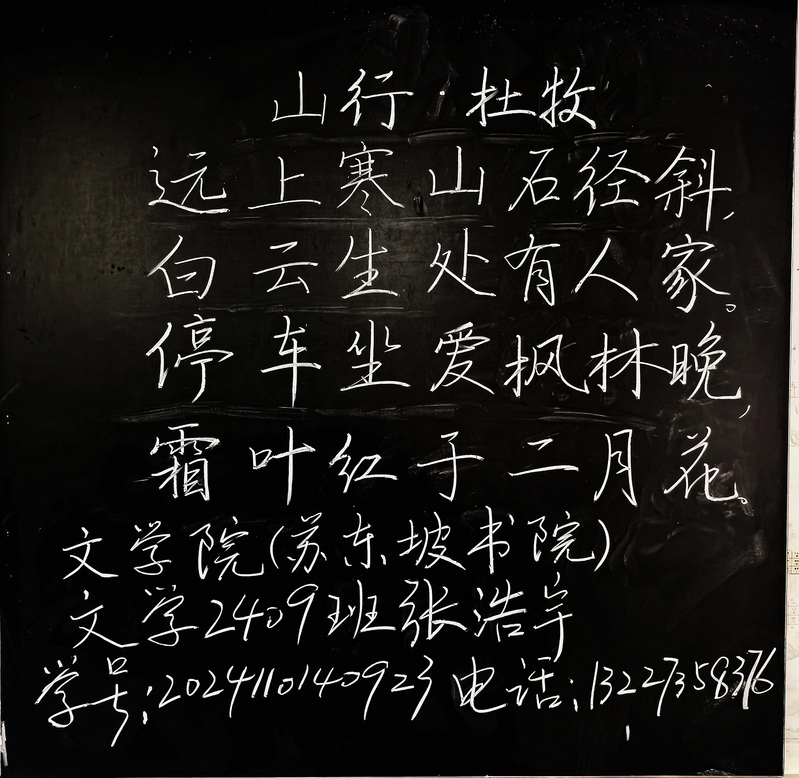 山行·杜牧
远上寒山石径斜,
白云生处有人家。
停车坐爱枫林晚,
霜叶红于二月花。
文学院(苏东坡书院)
文学2409班张浩宇
学号:2024110140923 电话:13227358376